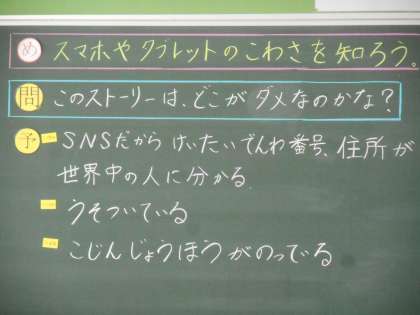 め スマホやタブレットのこわさを知ろう。
問 このストーリーは、どこがダメなのかな?
予 SNSだから けいたいでんわ番号、住所が
世界中の人に分かる
うそついている
こじんじょうほうがのってる